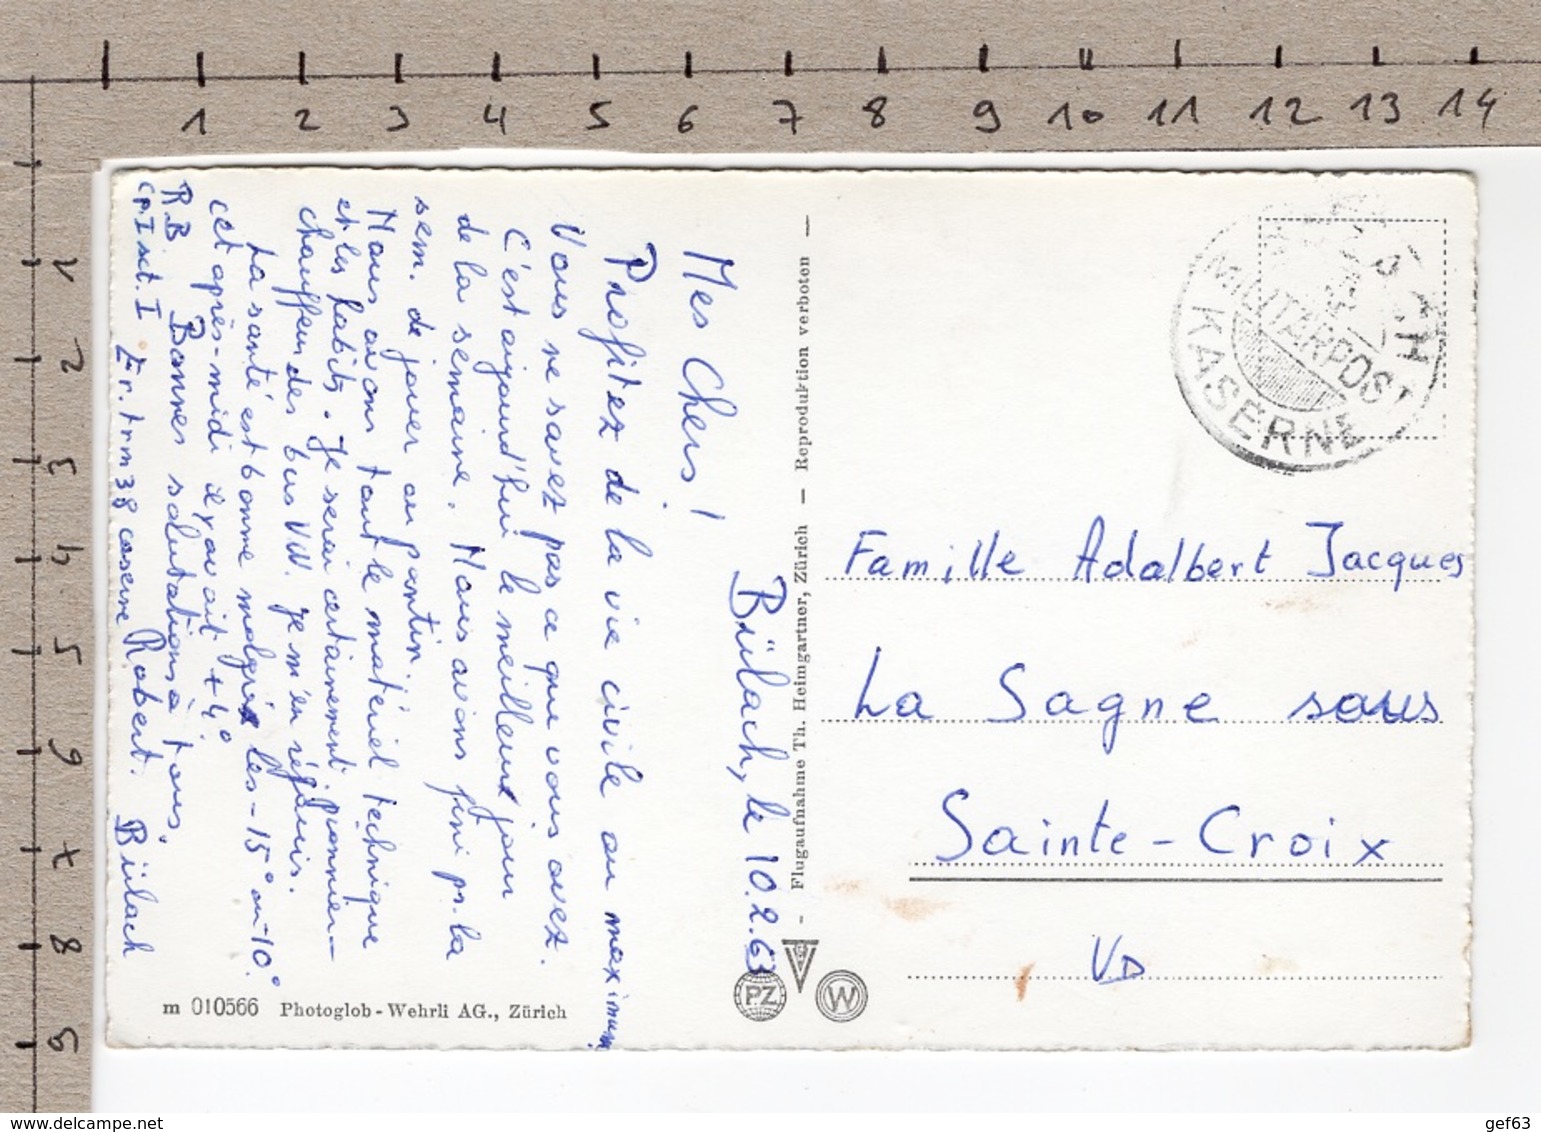 1 2 3 4 5 6 7 8 9 10 11 12 13 14
1
2
3
4
5
6
7
8
9
Bülach, le 10.2.63
Mes Chers!
Profitez de la vie civile au maximum
Vous ne savez pas ce que vous avez.
C'est aujourd'hui le meilleur jour
de la semaine. Nous avions fini pr. la
sem. de jouer au pantin.
Nous avons tout le matériel technique
et les habits. Je serai certainement pionnier-
chauffeur des bus VW. Je m'en réjouis.
La santé est bonne malgré les -15° ou -10°.
Cet après-midi il y avait +4°
Bonnes salutations à tous.
Robert.
R.B
Cp. I sct. I Er. trm 38 caserne Bülach
m 010566 Photoglob-Wehrli AG., Zürich
- Flugaufnahme Th. Heimgartner, Zürich — Reproduktion verboten —
PZ
W
MILITÄRPOST
KASERNE
Famille Adalbert Jacques
La Sagne sous
Sainte-Croix
VD
delcampe.net
gef63